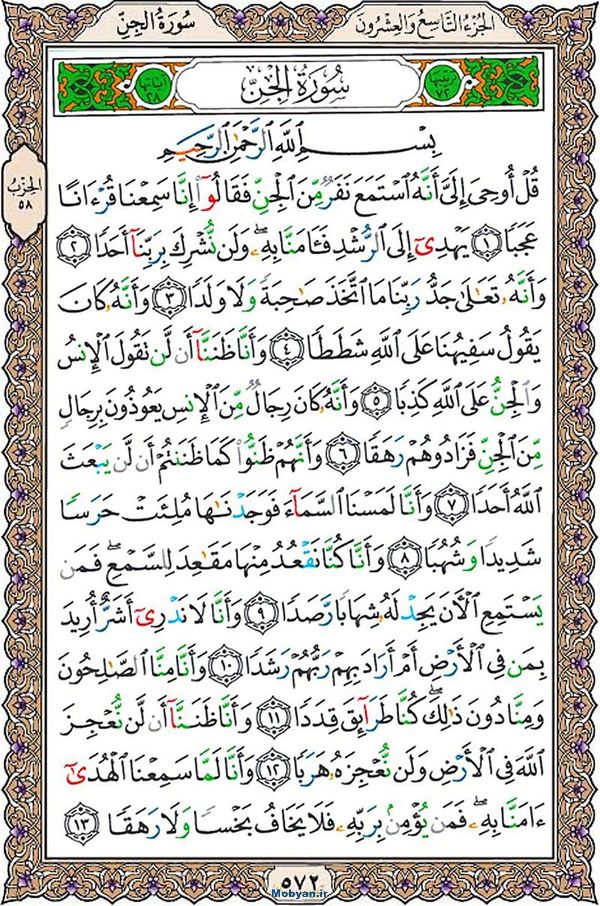 سُورَةُ الجِنّ
الجُزءُ التَّاسِعُ وَالعِشْرُونَ
سُورَةُ الجِنِّ
ترتيبها ٧٢
آياتها ٢٨
بِسْمِ ٱللَّهِ ٱلرَّحْمَٰنِ ٱلرَّحِيمِ
الحِزْبُ
٥٨
قُلْ أُوحِيَ إِلَيَّ أَنَّهُ ٱسْتَمَعَ نَفَرٌ مِّنَ ٱلْجِنِّ فَقَالُوٓا۟ إِنَّا سَمِعْنَا قُرْءَانًا
عَجَبًا ١ يَهْدِىٓ إِلَى ٱلرُّشْدِ فَـَٔامَنَّا بِهِۦ ۖ وَلَن نُّشْرِكَ بِرَبِّنَآ أَحَدًا ٢
وَأَنَّهُۥ تَعَٰلَىٰ جَدُّ رَبِّنَا مَا ٱتَّخَذَ صَٰحِبَةً وَلَا وَلَدًا ٣ وَأَنَّهُۥ كَانَ
يَقُولُ سَفِيهُنَا عَلَى ٱللَّهِ شَطَطًا ٤ وَأَنَّا ظَنَنَّآ أَن لَّن تَقُولَ ٱلْإِنسُ
وَٱلْجِنُّ عَلَى ٱللَّهِ كَذِبًا ٥ وَأَنَّهُۥ كَانَ رِجَالٌ مِّنَ ٱلْإِنسِ يَعُوذُونَ بِرِجَالٍ
مِّنَ ٱلْجِنِّ فَزَادُوهُمْ رَهَقًا ٦ وَأَنَّهُمْ ظَنُّوا۟ كَمَا ظَنَنتُمْ أَن لَّن يَبْعَثَ
ٱللَّهُ أَحَدًا ٧ وَأَنَّا لَمَسْنَا ٱلسَّمَآءَ فَوَجَدْنَٰهَا مُلِئَتْ حَرَسًا
شَدِيدًا وَشُهُبًا ٨ وَأَنَّا كُنَّا نَقْعُدُ مِنْهَا مَقَٰعِدَ لِلسَّمْعِ ۖ فَمَن
يَسْتَمِعِ ٱلْـَٔانَ يَجِدْ لَهُۥ شِهَابًا رَّصَدًا ٩ وَأَنَّا لَا نَدْرِىٓ أَشَرٌّ أُرِيدَ
بِمَن فِى ٱلْأَرْضِ أَمْ أَرَادَ بِهِمْ رَبُّهُمْ رَشَدًا ١٠ وَأَنَّا مِنَّا ٱلصَّٰلِحُونَ
وَمِنَّا دُونَ ذَٰلِكَ ۖ كُنَّا طَرَآئِقَ قِدَدًا ١١ وَأَنَّا ظَنَنَّآ أَن لَّن نُّعْجِزَ
ٱللَّهَ فِى ٱلْأَرْضِ وَلَن نُّعْجِزَهُۥ هَرَبًا ١٢ وَأَنَّا لَمَّا سَمِعْنَا ٱلْهُدَىٰٓ
ءَامَنَّا بِهِۦ ۖ فَمَن يُؤْمِنۢ بِرَبِّهِۦ فَلَا يَخَافُ بَخْسًا وَلَا رَهَقًا ١٣
٥٧٢
Mobyan.ir